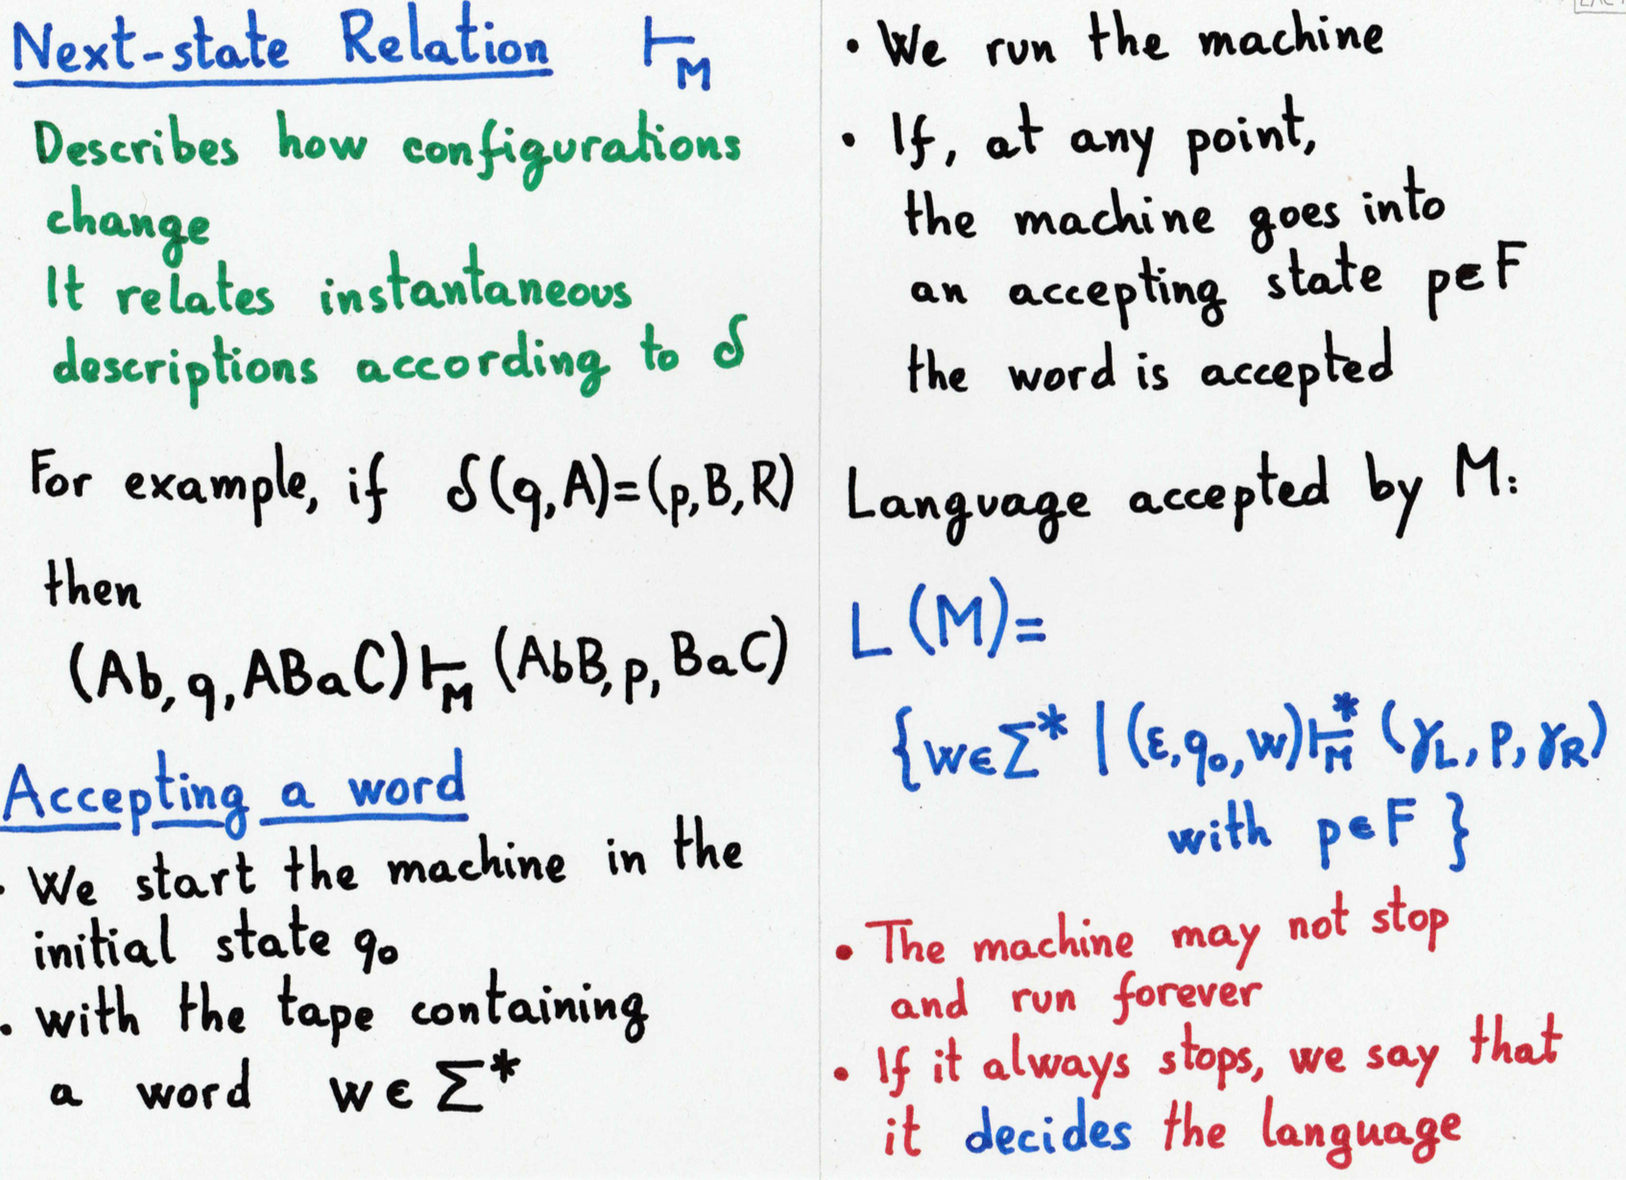 Next-state Relation ⊢M
Describes how configurations
change
It relates instantaneous
descriptions according to δ
For example, if δ(q,A)=(p,B,R)
then
(Ab,q,ABaC)⊢M(AbB,p,BaC)
Accepting a word
• We start the machine in the
initial state q₀
• with the tape containing
a word w∈Σ*
• We run the machine
• If, at any point,
the machine goes into
an accepting state p∈F
the word is accepted
Language accepted by M:
L(M)=
{w∈Σ* | (ε,q₀,w)⊢*M(γL,p,γR)
with p∈F}
• The machine may not stop
and run forever
• If it always stops, we say that
it decides the language